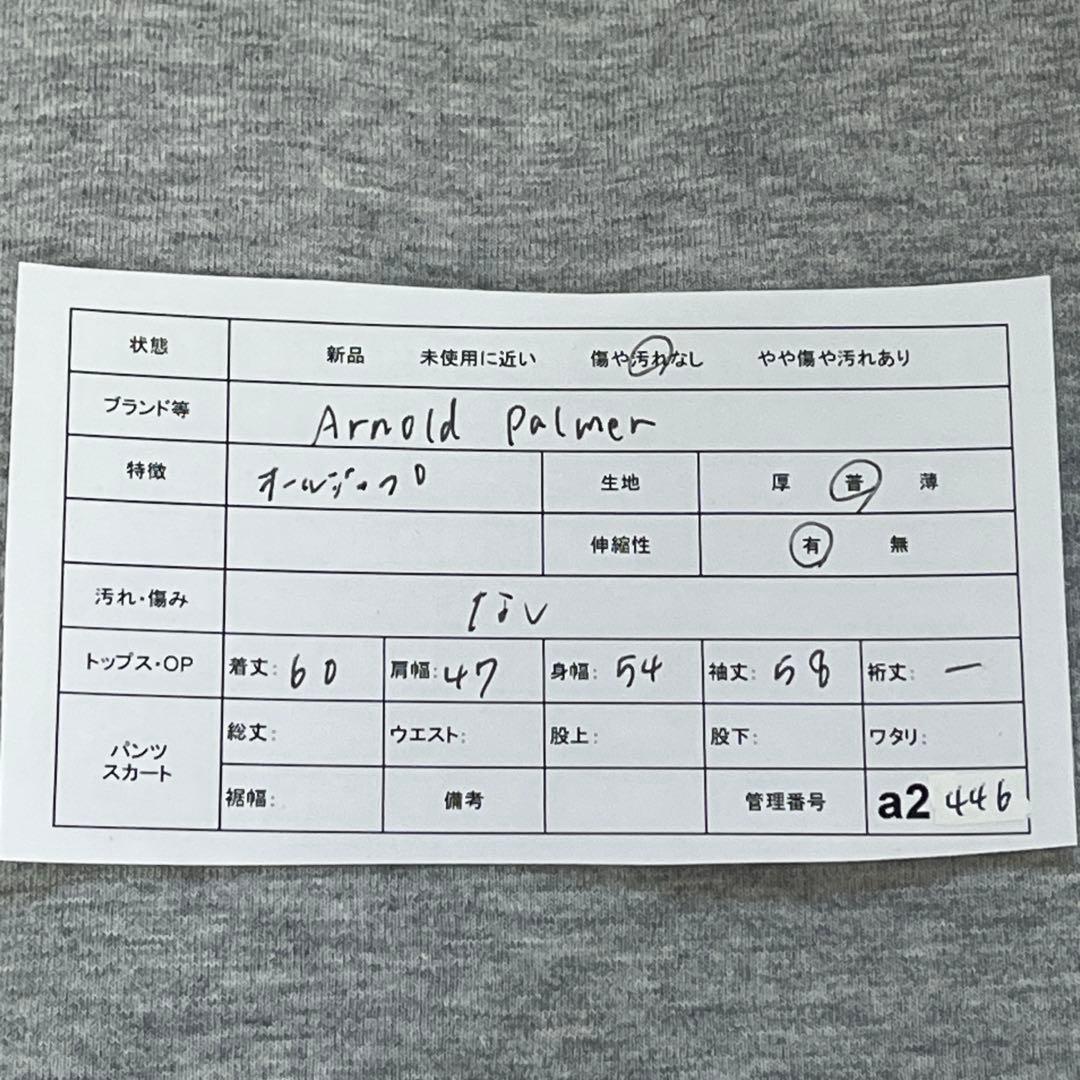 状態 新品 未使用に近い 傷や汚れなし やや傷や汚れあり
ブランド等 Arnold Palmer
特徴 オールジップ 生地 厚 普 薄
伸縮性 有 無
汚れ・傷み なし
トップス・OP 着丈: 60 肩幅: 47 身幅: 54 袖丈: 58 裄丈: ー
パンツ スカート 総丈: ウエスト: 股上: 股下: ワタリ:
裾幅: 備考 管理番号 a2 446